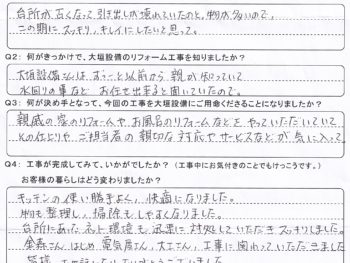 台所が古くなって、引き出しが壊れていたのと、物が多いので、
この期に スッキリ、キレイにしたいと思って。
Q2: 何がきっかけで、大垣設備のリフォーム工事を知りましたか？
大垣設備さんは、ずっと以前から親が知っていて
水回りの事など お仕事出来ると聞いていたので。
Q3: 何が決め手となって、今回の工事を大垣設備にご用命くださることになりましたか？
親戚の家のリフォームやお風呂のリフォームなどをやっていただいていて
その仕上りや ご担当者の親切な対応やサービスなどが気に入って。
Q4: 工事が完成してみて、いかがでしたか？（工事中にお気付きのことでもけっこうです。）
お客様の暮らしはどう変わりましたか？
キッチンの使い勝手よく、快適になりました。
物も整理し、掃除もしやすくなりました。
台所にあったネット環境も迅速に対処していただきスッキリしました。
さんはじめ 電気屋さん、大工さん、工事に関わっていただきました